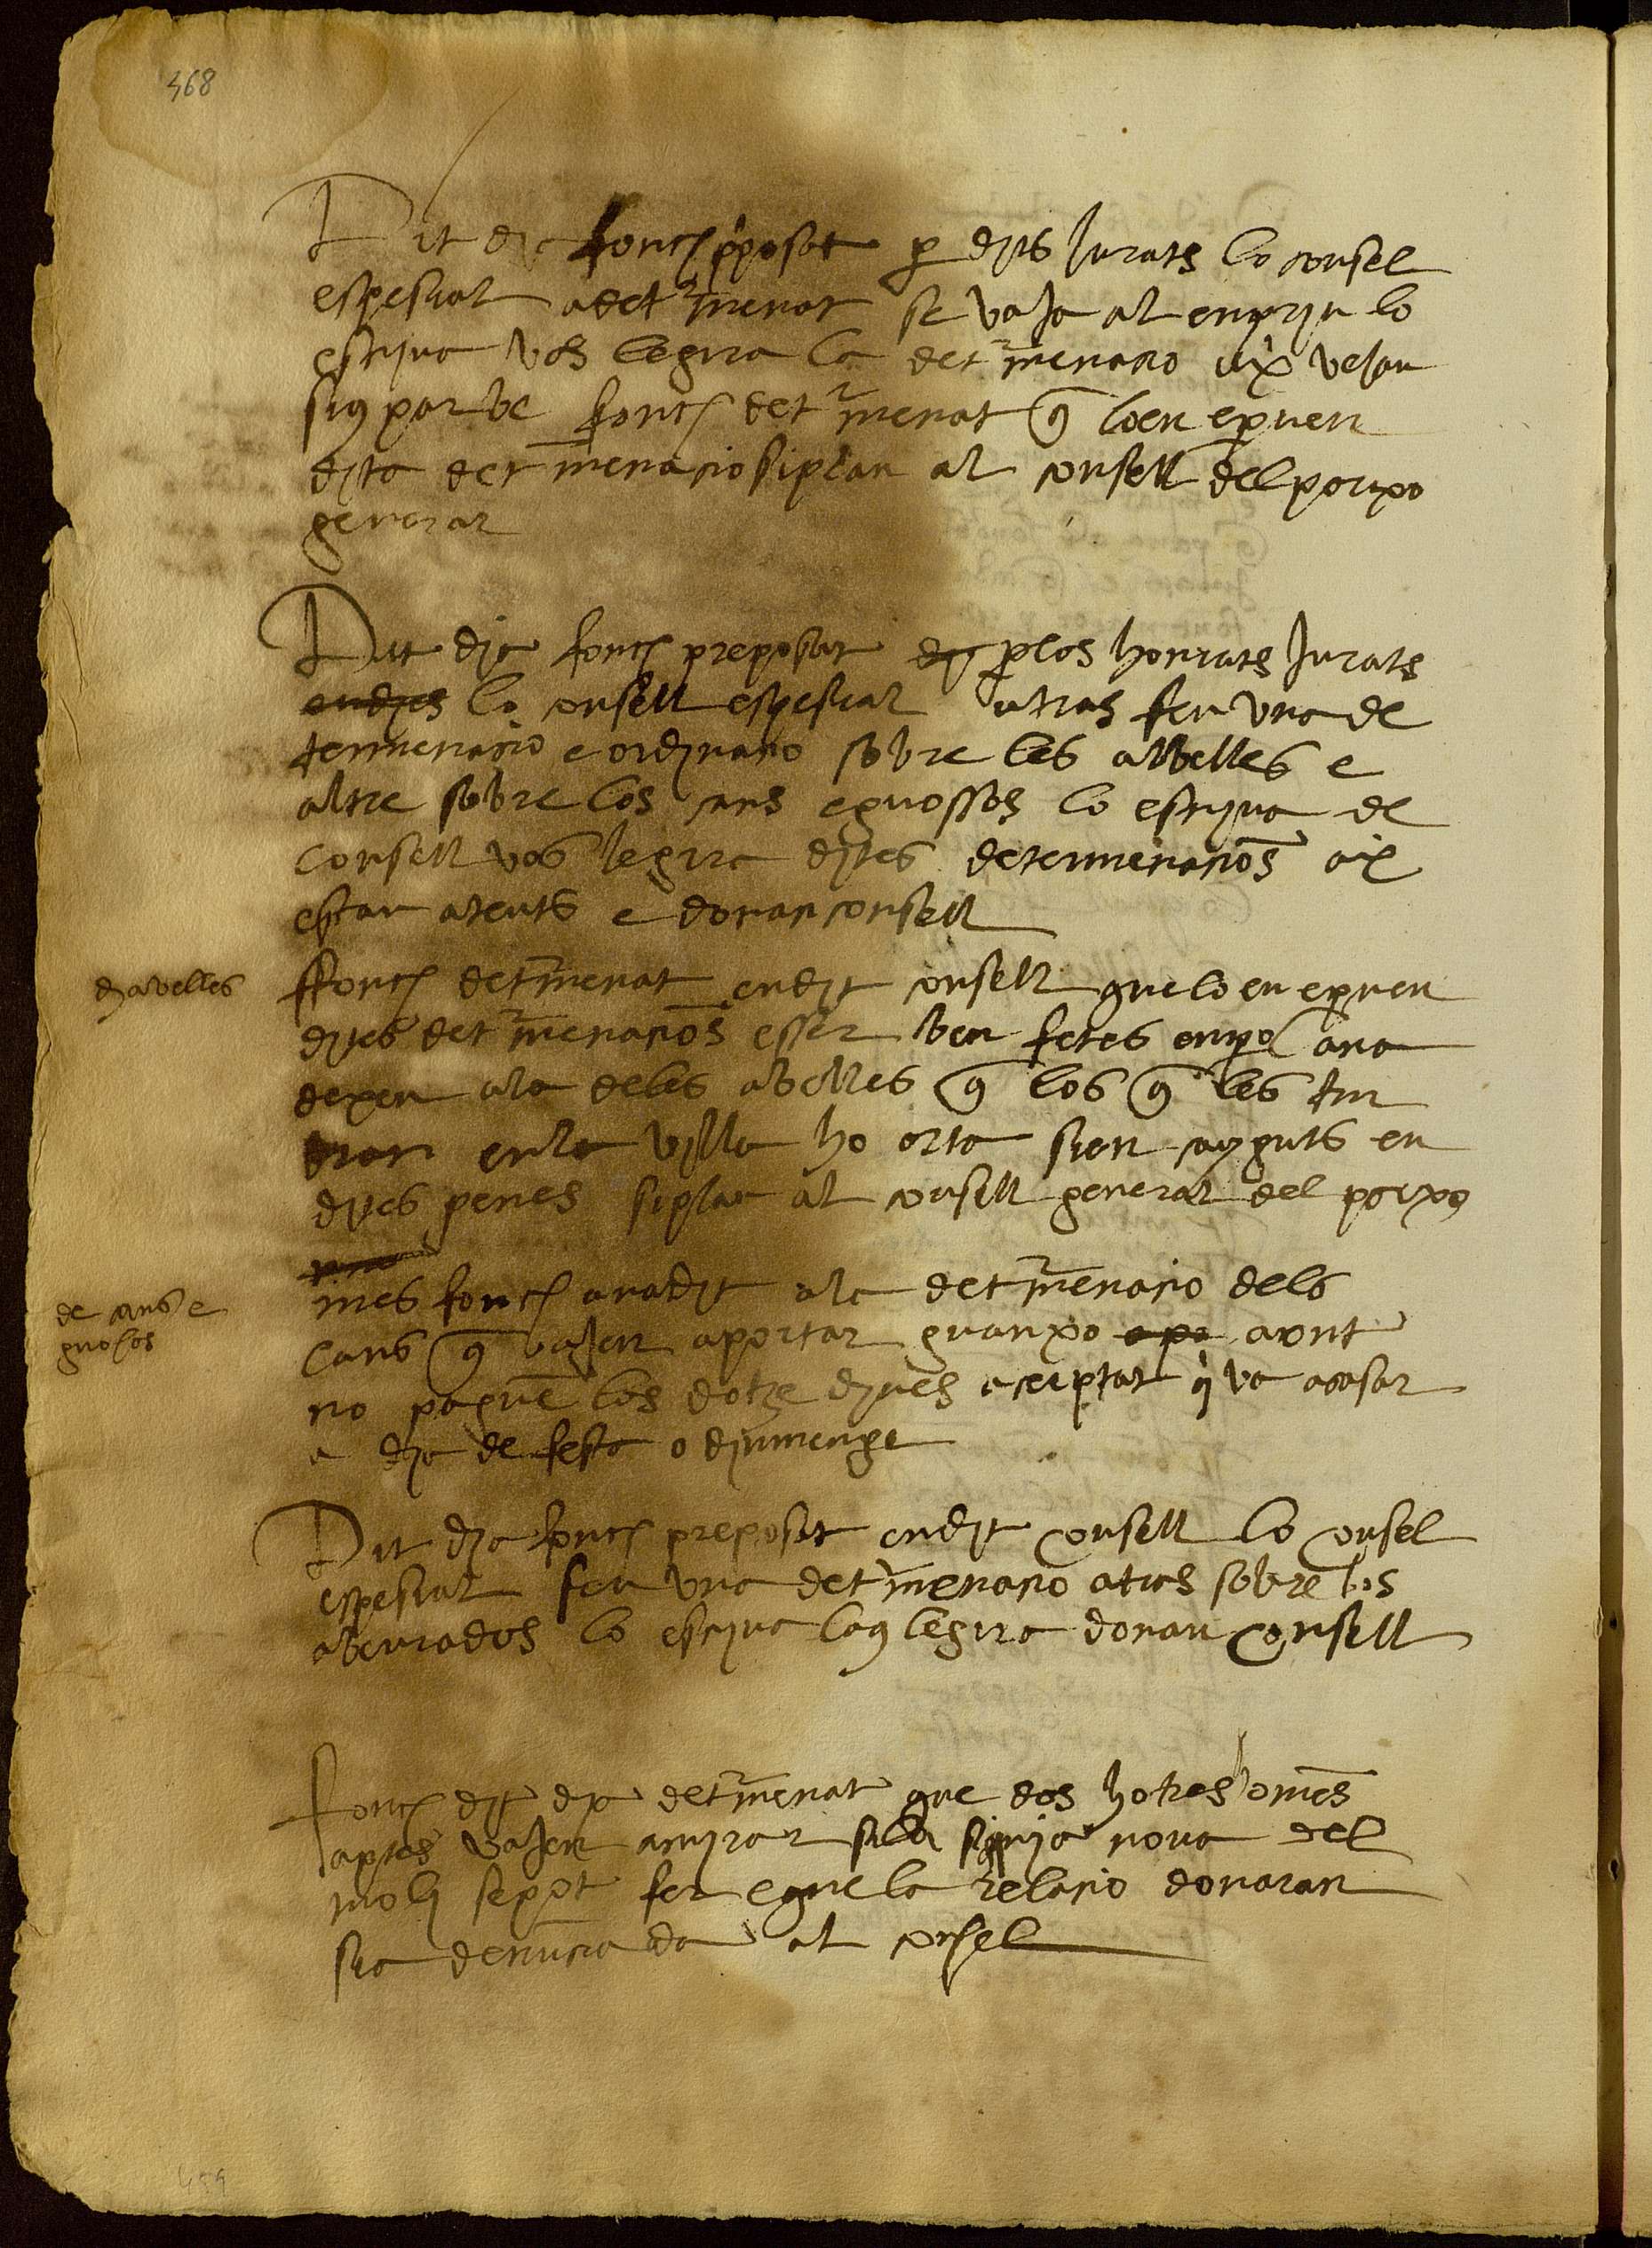 468
Dit dia fonch pposat p dits Jurats lo consel
espesial a detmenat se vaja al enprju lo
escriva vos legira la detmenacio aix vejau
sius par be fonch detmenat q loen e proven
dita detmenacio si plau al consell del porxo
general
Dit dia fonch preposat per los honrats Jurats
lo consell espesial atras feu una de
termenacio e ordinacio sobre les abelles e
altre sobre los cans e guossos lo escriva de
consell vos legira dites determenacios aix
estau atents e donau consell
dabelles
ffonch detmenat en dit consell que loen e proven
dites detmenacios esser ben fetes enpo ana
dexen a la deles abelles q los q les tin
dran en la villa ho orta sien cayguts en
dites penes si plau al consell general del porxo
de cans e
guosos
mes fonch anadit a la detmenacio dels
cans q vajen aportar guanxo amt
no paguen los dotze diners aceptat q va acasar
a dia de festa o diumenge
Dit dia fonch preposat en dit consell lo consel
espesial feu una detmenacio atras sobre los
abeurados lo escriva laus legira donau consell
fonch dit dia detmenat que dos ho tres omes
aptes vajen amirar si la siquia nova del
moli se pot fer e que la relacio donaran
sia denunciada al consel